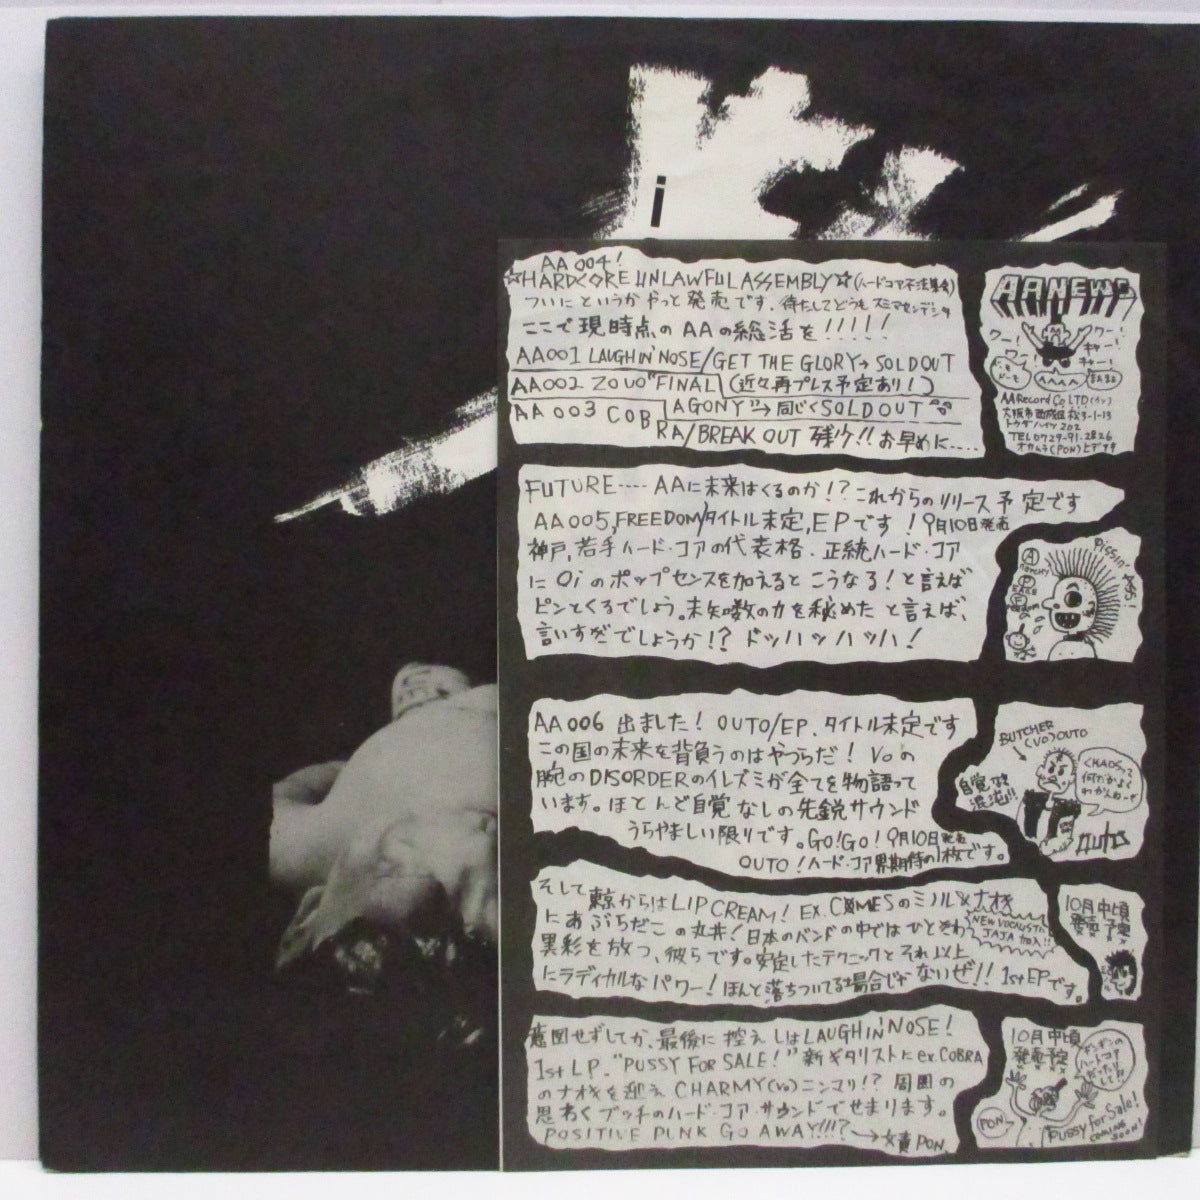 i
AA 004!
☆HARDCORE UNLAWFUL ASSEMBLY☆(ハードコア不法集会)
ついにというかやっと発売です. 待たしてどうもスミマセンデシタ
ここで現時点のAAの総活を!!!!!
AA001 LAUGHIN'NOSE/GET THE GLORY→SOLD OUT
AA002 ZOUO "FINAL (近々再プレス予定あり!)
AGONY"→同じくSOLD OUT
AA 003 COBRA/BREAK OUT 残少!! お早めに....
AA NEWS
ワー!
ワー!
キャー!
ワー!
キャー!
AAAA
AA Record Co LTD
大阪市西成区松3-1-13
トウダハイツ202
TEL 0729-91-2826
オカムラ(PON)ヒデユキ
FUTURE---- AAに未来はくるのか!? これからのリリース予定です
AA005, FREEDOM/タイトル未定, EPです! 9月10日発売
神戸,若手ハード・コアの代表格. 正統ハード・コア
に Oi のポップセンスを加えると こうなる!と言えば
ピンとくるでしょう。未知数の力を秘めた と言えば、
言いすぎでしょうか!? ドッハッハッハ!
Pissin'
AA 006 出ました! OUTO/EP. タイトル未定です
この国の未来を背負うのはやつらだ! Voの
腕のDISORDERのイレズミが全てを物語って
います。ほとんど自覚なしの先鋭サウンド
うらやましい限りです。GO!GO! 9月10日発売
OUTO!ハード・コア界期待の1枚です。
BUTCHER
(VO)OUTO
CHAOSって
何だかよく
わかんねーぞ
自覚なき
混沌!!
outo
そして東京からはLIP CREAM! EX. COMESのミノル&大極
にあぶらだこの丸井!日本のバンドの中では ひときわ
NEW VOCALIST
JAJA 加入!!
異彩を放つ、彼らです。安定したテクニックとそれ以上
にラディカルなパワー!ほんと落ちついてる場合じゃないぜ!! 1st EPです。
10月中頃
発売予定
意図せずしてか、最後に控えしはLAUGHIN'NOSE!
1st LP. "PUSSY FOR SALE!" 新ギタリストにex.COBRA
のナオキを迎え CHARMY(Vo)ニンマリ!? 周囲の
思わくブッチのハード・コア・サウンドでせまります。
POSITIVE PUNK GO AWAY!!!!? →文責PON.
10月中頃
発売予定
PON
Pussy for Sale!
COMING SOON!